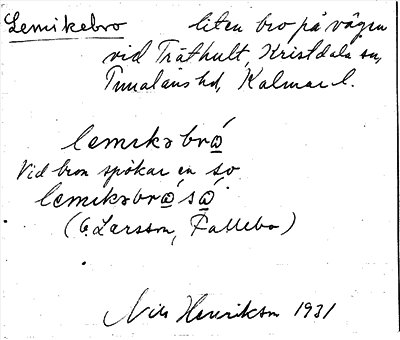 Lemikebro liten bro på vägen
vid Träthult, Kristdala sn,
Tunaläns hd, Kalmar l.
lemikəbrǻ
Vid bron spökar en so
lemikəbrǻsǻ
(C. Larsson, Fallebo)
Nils Henrikson 1931